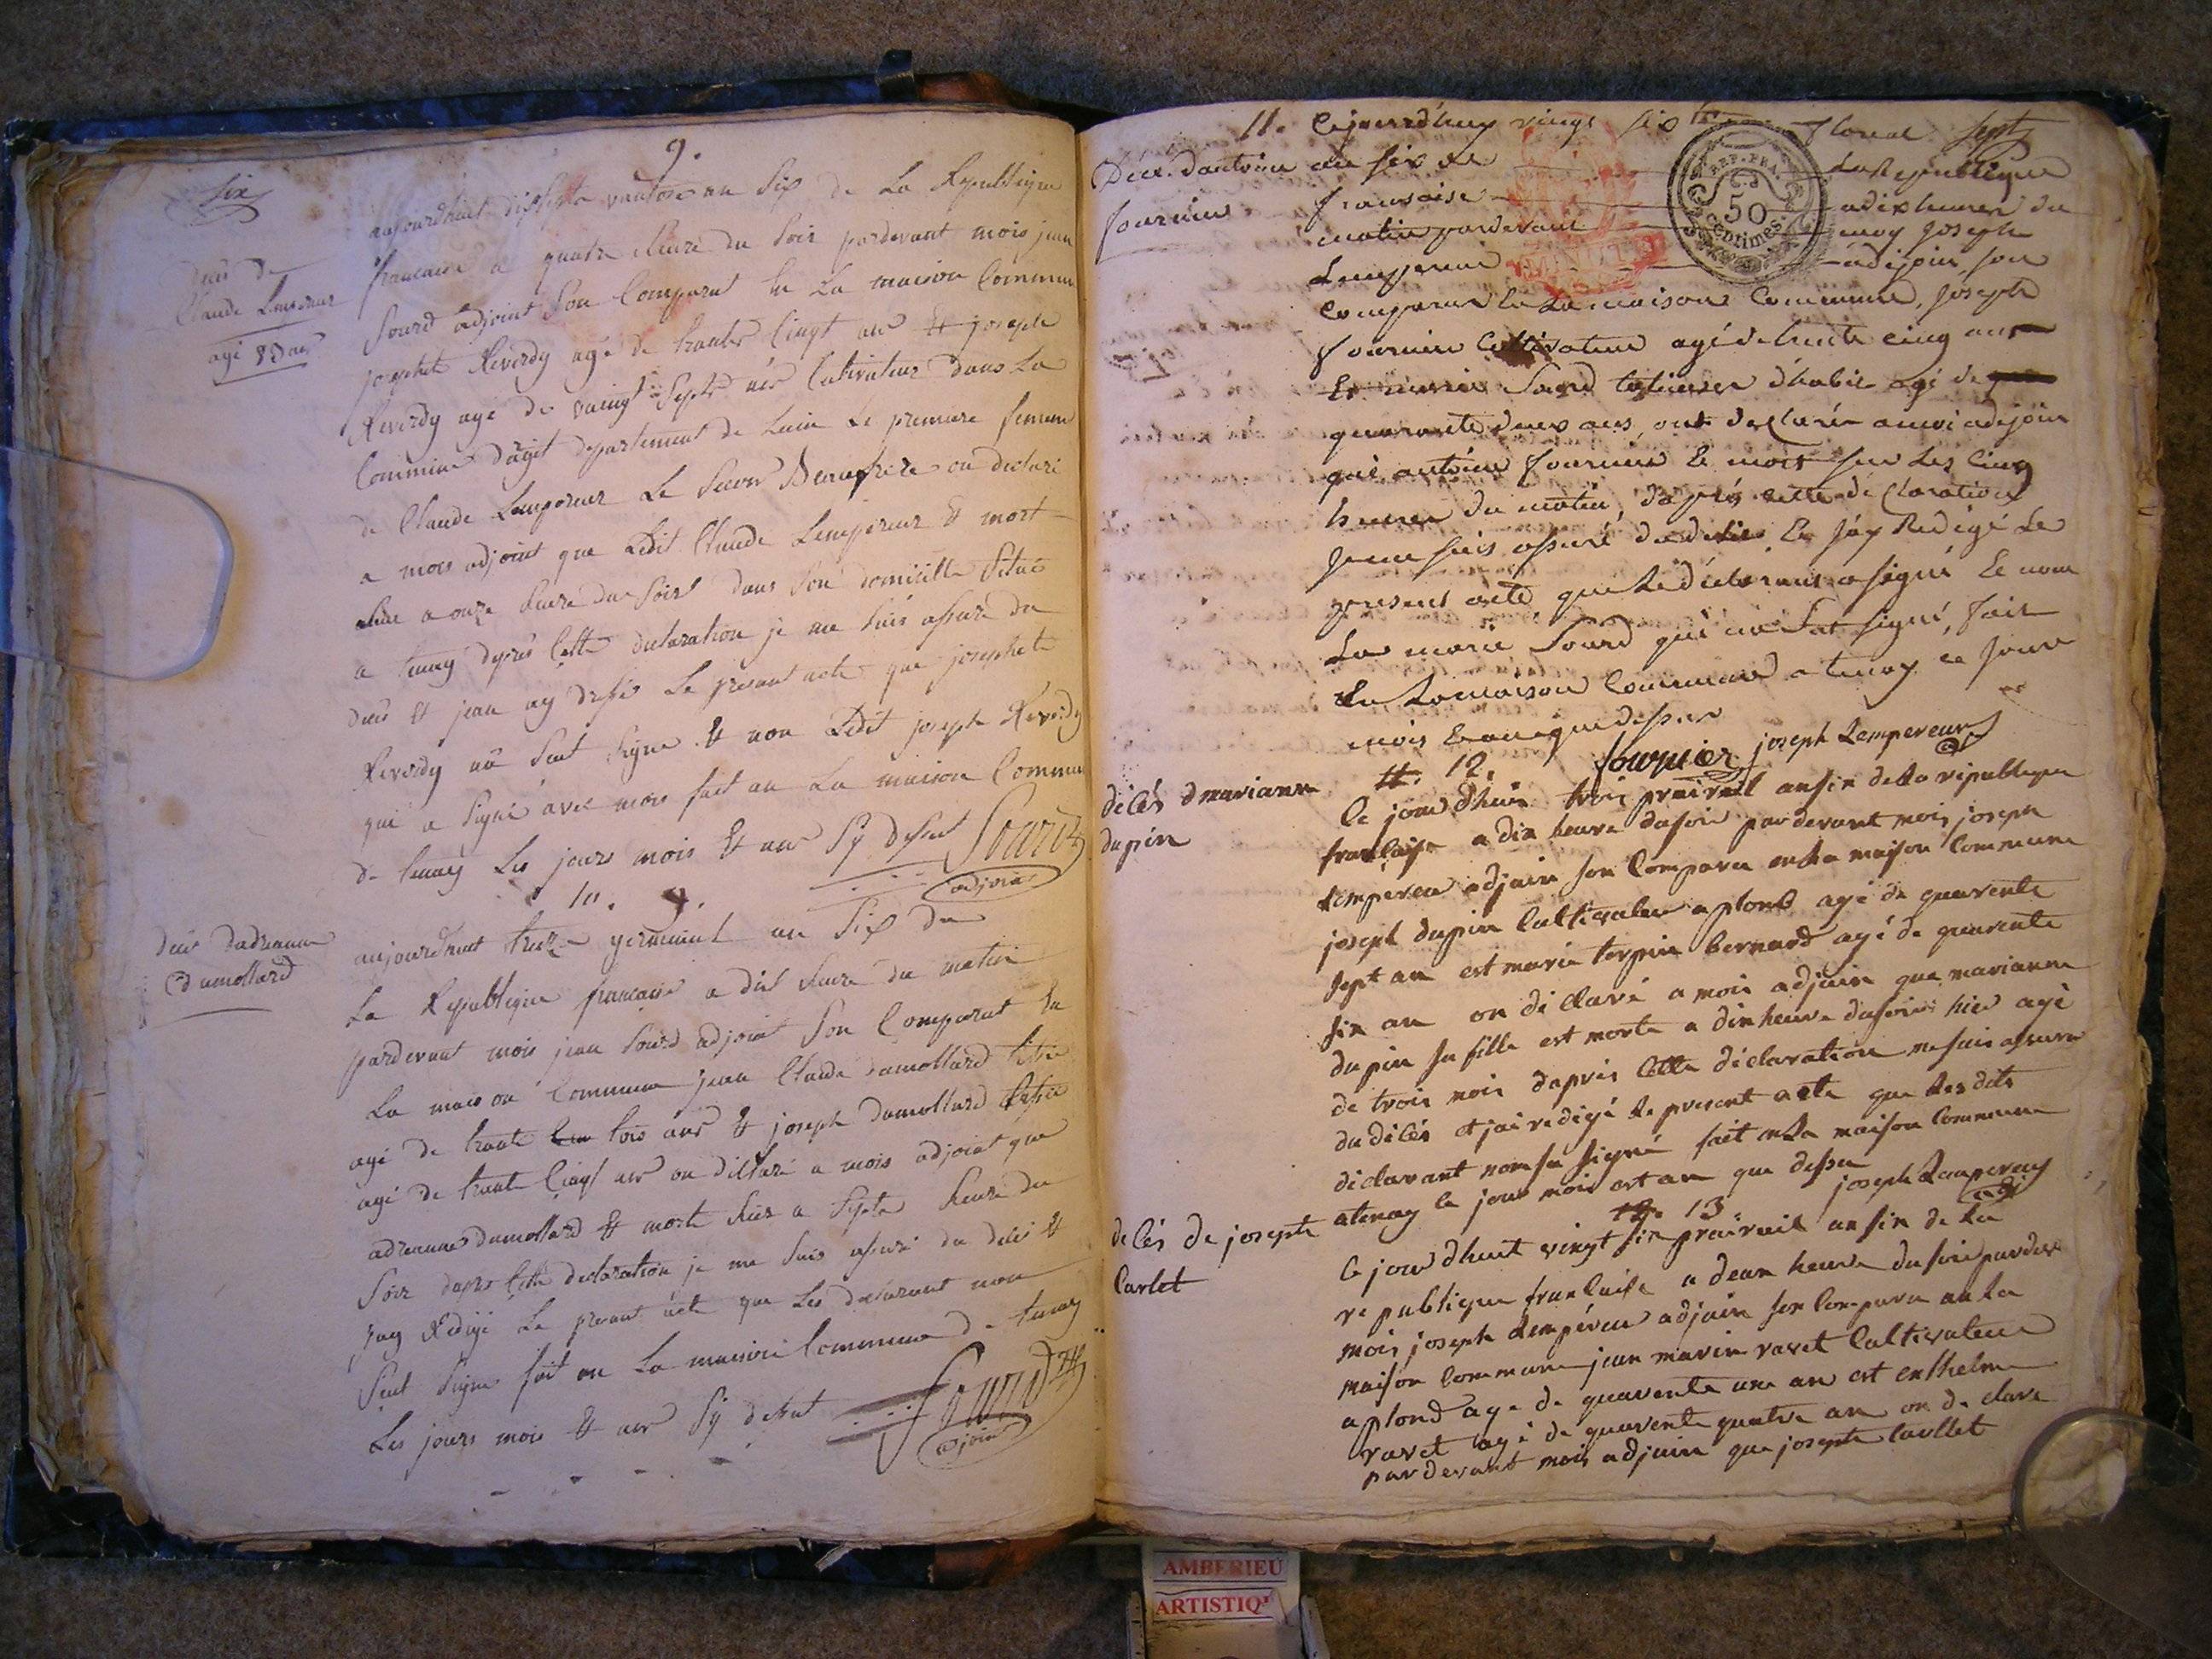 six
9.
deces de
Claude Lempereur
agé 83 ans
aujourdhuit dixsepte vantose an Six de La Republique
francaise a quatre heure du Soir pardevant mois jean
Sourd adjoint Son Comparut en La maison Commun
josephte Reverdy agé de trante Cinqt ans & joseph
Reverdy agé de vaingt Septe ans Cultivateur dans La
Commune departement de Lain Le premiere femme
de Claude Lempereur Le Secon Beaufrere on declaré
a mois adjoint que Ledit Claude Lempereur & mort
hier a onze heure du Soirt dans Son domicille Situé
a tenay dapres Cette declaration je me Suis assure du
deces & jean ay dressé Le presant acte que josephete
Reverdy na Seut Signe & non Ledit joseph Reverdy
qui a Signé avec mois fait an La maison Commun
de tenay Les jours mois & ans Sÿ dessut Sourd
adjoint
10.
deces dadrianne
dumollard
aujourdhuit treize germinal an Six de
La Republique francaise a dix heure du matin
pardevant mois jean Sourd adjoint Son Comparut En
La maison Commune jean Claude dumollard
agé de trante tois ans & joseph dumollard
agé de trante Cinqt ans on declaré a mois adjoint que
adrianne dumollard & morte hier a Septe heure du
Soir dapres Cette declaration je me Suis assuré du deces &
jay Redigé Le presant acte que Les declarant non
Seut Signe fait an La maison Commune de tenay
Les jours mois & ans Sÿ dessut Sourd
adjoint
11.
Déce. dantoine
fournier
Cejourdhuy vingt six floreal sept
an six de La Republique
fransaise adix heures du
matin pardevant moy Joseph
Lempereur adjoin, son
comparus en La maison Commune, Joseph
fournier Cultivateur agé de trente cinq ans
Et marin Sourd tallieur dhabit agé de
quarante deux ans, ont declarér amoi adjoin
que antoine fournier Et mort sur Les Cinq
heures du matin, daprès cette declaration
Je me suis assuré dudeces Et Jay Redigé Le
present acte que Le déclarant a signé Et non
Le marie Sourd qui na Sut signé, fait
En La maison Commune a tenay ce Jour
mois Et an que dessus
fournier joseph Lempereur
décés dmarianne
dupin
12.
ce jourdhuis trois prairial ansix de La république
française a dix heure dusoir pardevant mois joseph
Lempereu adjoin son Comparu en La maison Commune
joseph dupin Cultivateur aplond agé de quarente
sept an est marie torpin bernard agé de quarente
six an on di claré a mois adjoin que marianne
dupin sa fille est morte a dix heure dusoir hier agé
de trois mois dapres Cette diclaration me suis assure
du dicés et jai redigé Le present acte que Les dits
diclarant nonsu signé fait en La maison Commune
atenay le jour mois est an que dessu
joseph Lempereur
adj
decés de joseph
Carlet
13
ce jourdhuit vingt six prairail an six de La
republique franCaise a deux heure du soir pardev
mois joseph Lempéreu adjoin son Comparu an La
maison Commune jean marin ravet Cultivateur
aplond age de quarente une an est enthelme
ravet agé de quarente quatre an on de clare
pardevant mois adjoin que joseph Carllet
REP. FRA.
50
Centimes
AMBERIEU
ARTISTIQ'